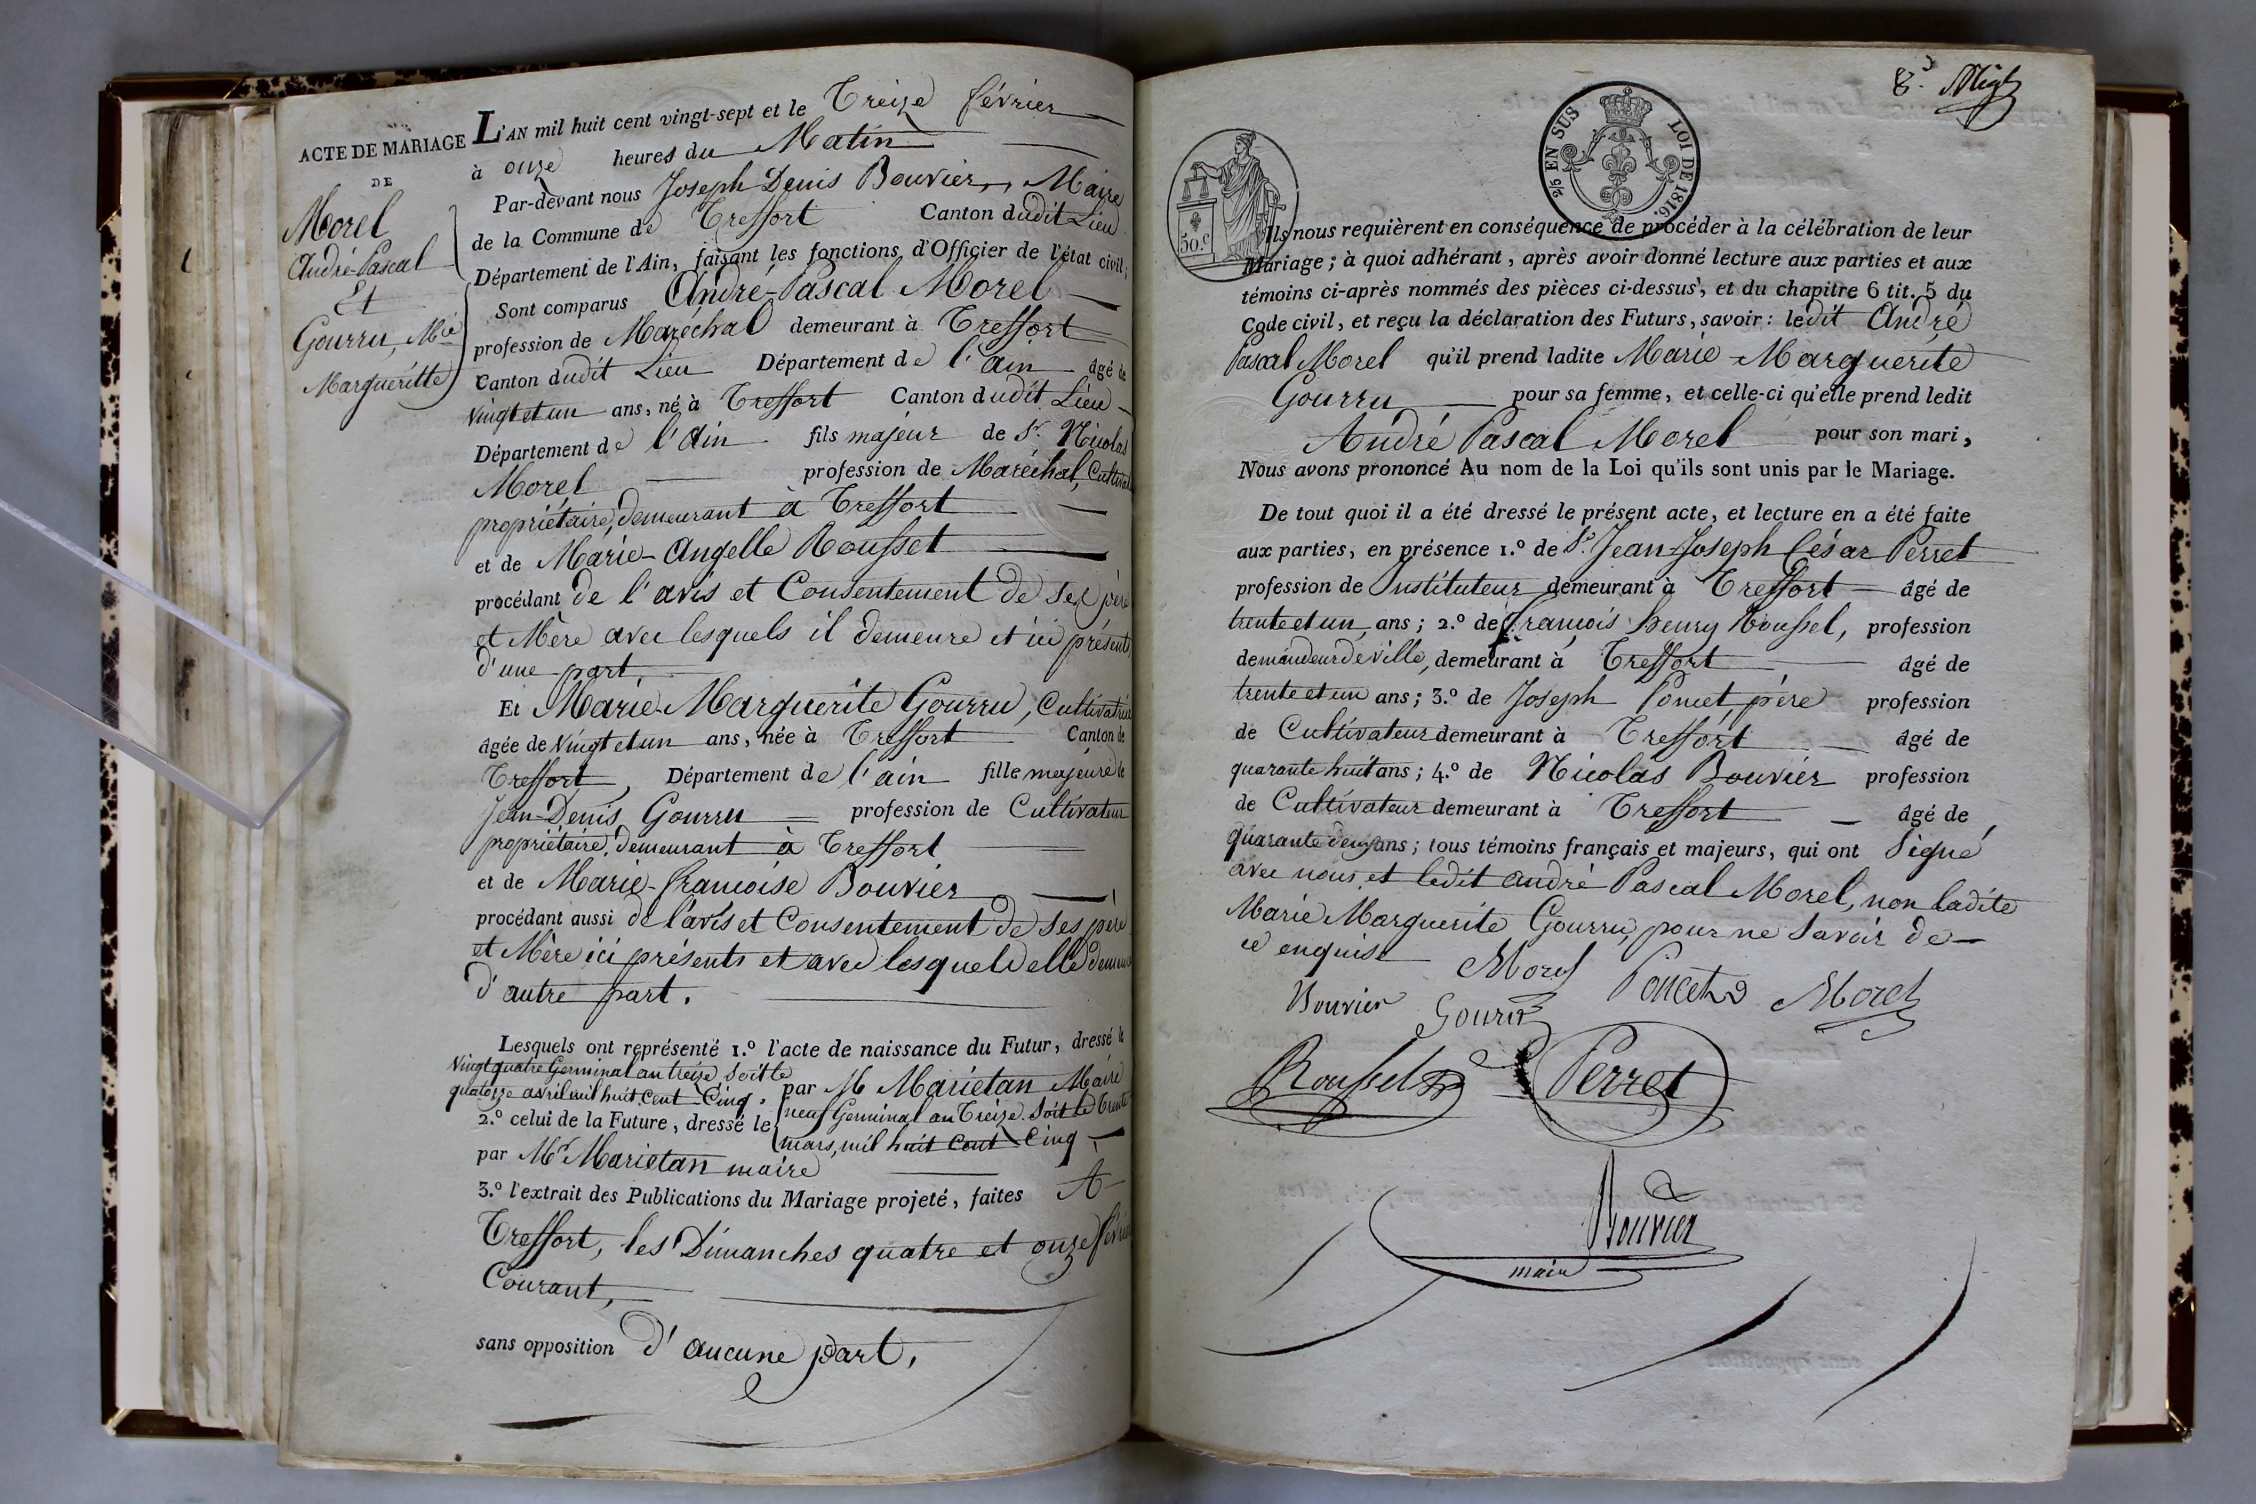 ACTE DE MARIAGE
DE
Morel
André-Pascal
Et
Gourru, Mie
Marguéritte
L'AN mil huit cent vingt-sept et le Treize février
à onze heures du Matin
Par-devant nous Joseph Denis Bouvier, Maire
de la Commune de Treffort Canton dudit Lieu
Département de l'Ain, faisant les fonctions d'Officier de l'état civil;
Sont comparus André-Pascal Morel
profession de Maréchal demeurant à Treffort
Canton dudit Lieu Département de l'ain âgé de
vingt et un ans, né à Treffort Canton dudit Lieu
Département de l'Ain fils majeur de Sr. Nicolas
Morel profession de Maréchal, Cultivat
propriétaire, demeurant à Treffort
et de Marie-Angelle Rousset
procédant de l'avis et Consentement de ses père
et Mère avec lesquels il demeure et ici présents
d'une part.
Et Marie-Marguerite Gourru, Cultivatrice
âgée de vingt et un ans, née à Treffort Canton de
Treffort, Département de l'ain fille majeure de
Jean-Denis Gourru profession de Cultivateur
propriétaire, demeurant à Treffort
et de Marie-francoise Bouvier
procédant aussi de l'avis et Consentement de ses père
et Mère ici présents et avec lesquels elle demeure
d'autre part.
Lesquels ont représenté 1.º l'acte de naissance du Futur, dressé le
vingt quatre Germinal an treize soit le
quatorze avril mil huit cent Cinq. par Mr Marietan Maire
2.º celui de la Future, dressé le neuf Germinal an Treize soit le Trente
mars, mil huit Cent Cinq
par Mr Marietan maire
3.º l'extrait des Publications du Mariage projeté, faites A
Treffort, les Dimanches quatre et onze février
Courant,
sans opposition d'aucune part,
50.c
2/5 EN SUS LOI DE 1816.
Ils nous requièrent en conséquence de procéder à la célébration de leur
Mariage; à quoi adhérant, après avoir donné lecture aux parties et aux
témoins ci-après nommés des pièces ci-dessus, et du chapitre 6 tit. 5 du
Code civil, et reçu la déclaration des Futurs, savoir: ledit André
Pascal Morel qu'il prend ladite Marie-Marguerite
Gourru pour sa femme, et celle-ci qu'elle prend ledit
André Pascal Morel pour son mari,
Nous avons prononcé Au nom de la Loi qu'ils sont unis par le Mariage.
De tout quoi il a été dressé le présent acte, et lecture en a été faite
aux parties, en présence 1.º de Sr. Jean-Joseph César Perret
profession de Instituteur demeurant à Treffort âgé de
trente et un ans; 2.º de francois henry Roussel, profession
de maudeur de ville, demeurant à Treffort âgé de
trente et un ans; 3.º de Joseph Poncet, père profession
de Cultivateur demeurant à Treffort âgé de
quarante huit ans; 4.º de Nicolas Bouvier profession
de Cultivateur demeurant à Treffort âgé de
quarante deux ans; tous témoins français et majeurs, qui ont signé
avec nous et ledit andré Pascal Morel, non ladite
Marie Marguerite Gourru, pour ne savoir de
ce enquise
Morel Poncet Morel
Bouvier Gourru
Roussel Perret
Bouvier
maire